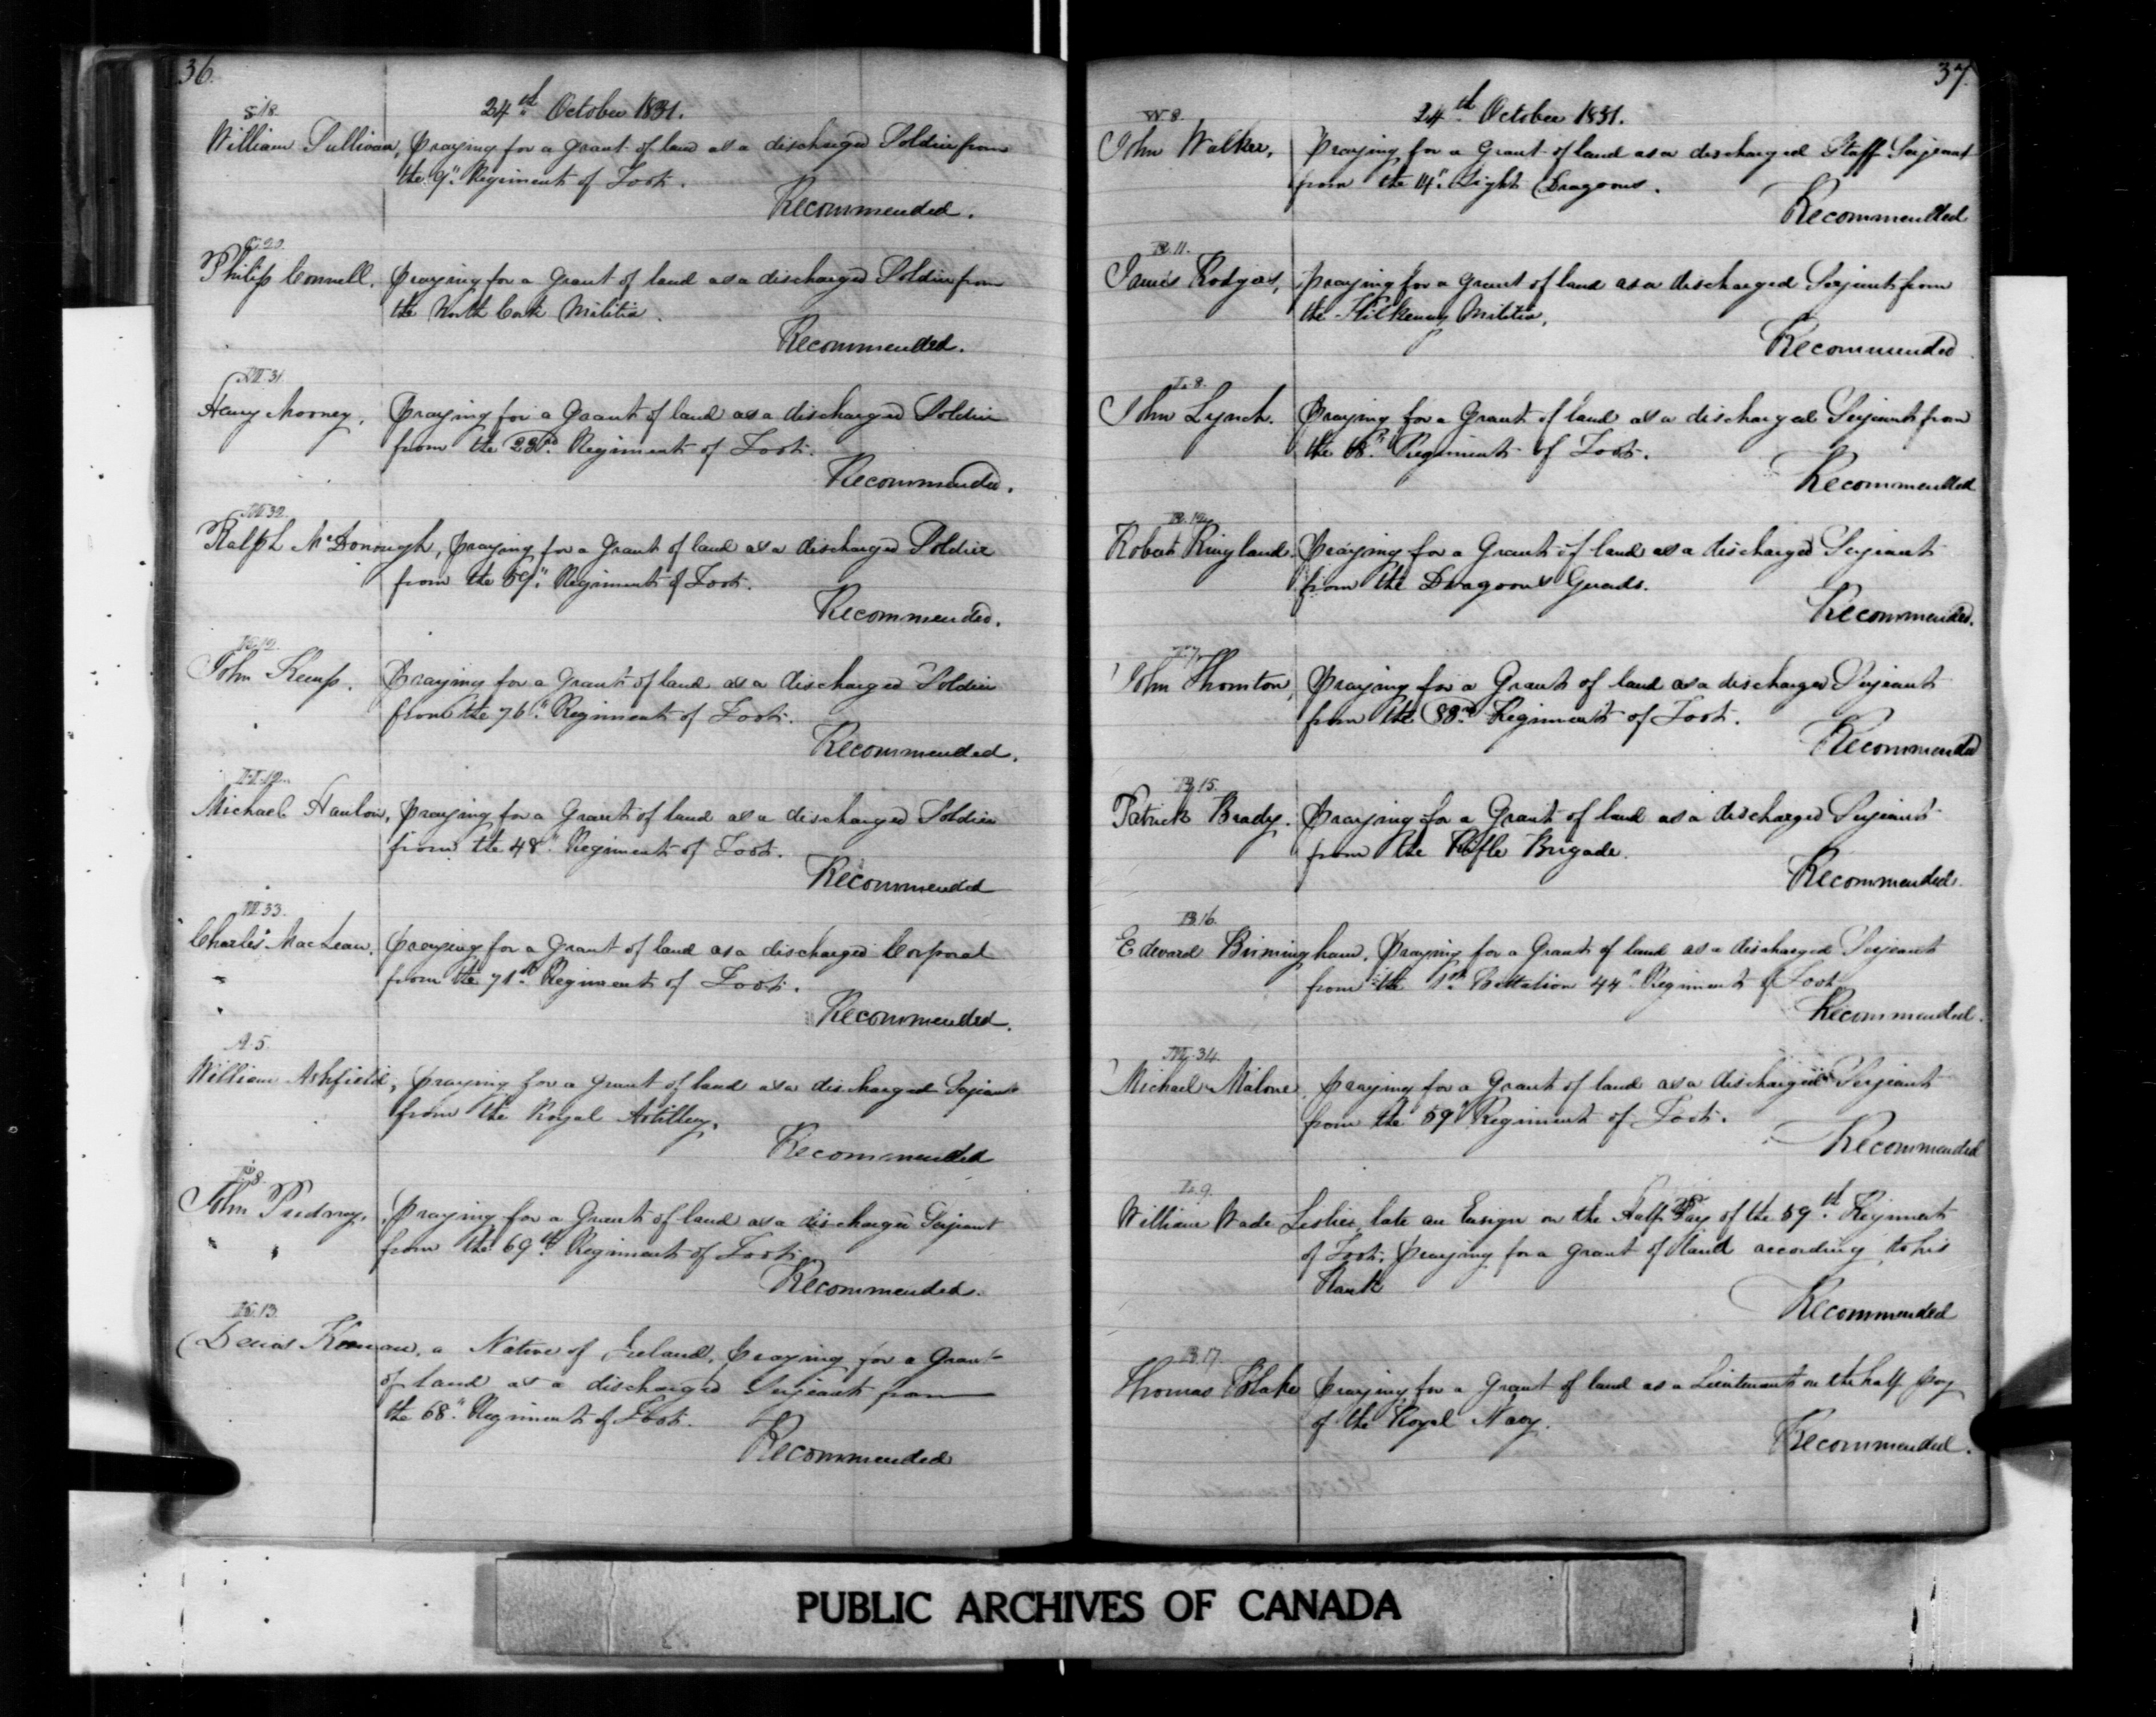 36.
24th October 1831.
S 18.
William Sullivan, praying for a grant of land as a discharged Soldier from
the 9" Regiment of Foot.
Recommended.
C 20.
Philip Connell, praying for a grant of land as a discharged Soldier from
the North Cork Militia.
Recommended.
M 31.
Henry Mooney, Praying for a Grant of land as a discharged Soldier
from the 23rd Regiment of Foot.
Recommended.
M 32.
Ralph McDonough, praying for a grant of land as a discharged Soldier
from the 59" Regiment of Foot.
Recommended.
K 12.
John Kemp. Praying for a Grant of land as a discharged Soldier
from the 76" Regiment of Foot.
Recommended.
H 12.
Michael Hanlon, praying for a Grant of land as a discharged Soldier
from the 48" Regiment of Foot.
Recommended
M 33.
Charles MacLean, praying for a Grant of land as a discharged Corporal
from the 71st Regiment of Foot.
Recommended.
A. 5.
William Ashfield, praying for a grant of land as a discharged Serjeant
from the Royal Artillery.
Recommended
P. 8.
John praying for a Grant of land as a discharged Serjeant
from the 69th Regiment of Foot.
Recommended.
K. 13.
a Native of Ireland, praying for a Grant
of land as a discharged Serjeant from
the 68" Regiment of Foot.
Recommended
37.
24th October 1831.
W 8.
John Walker, praying for a Grant of land as a discharged Staff Serjeant
from the 14" Light Dragoons.
Recommended
R. 11.
James Rodgers, praying for a grant of land as a discharged Serjeant from
the Kilkenny Militia,
Recommended
L. 8.
John Lynch. Praying for a Grant of land as a discharged Serjeant from
the 68" Regiment of Foot.
Recommended
R. 12.
Robert Ringland. Praying for a Grant of land as a discharged Serjeant
from the Dragoon Guards.
Recommended.
T. 7.
John Thornton, Praying for a Grant of land as a discharged Serjeant
from the Regiment of Foot.
Recommended
B. 15.
Patrick Brady. praying for a Grant of land as a discharged Serjeant
from the Rifle Brigade.
Recommended.
B. 16.
Edward Birmingham. Praying for a Grant of land as a discharged Serjeant
from the 1st Battalion 44" Regiment of Foot
Recommended.
M. 34.
Michael Malone praying for a Grant of land as a discharged Serjeant
from the 59" Regiment of Foot.
Recommended
L. 9.
William Wade Leslie, late an Ensign on the Half Pay of the 59th Regiment
of Foot, praying for a grant of land according to his
Rank
Recommended
B. 17.
Thomas Blake praying for a Grant of land as a Lieutenant on the half pay
of the Royal Navy.
Recommended.
PUBLIC ARCHIVES OF CANADA